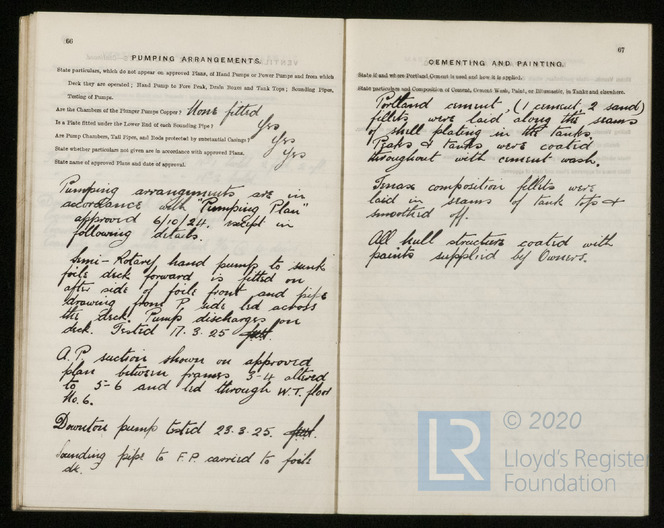 66
PUMPING ARRANGEMENTS.
State particulars, which do not appear on approved Plans, of Hand Pumps or Power Pumps and from which
Deck they are operated; Hand Pump to Fore Peak, Drain Boxes and Tank Tops; Sounding Pipes,
Testing of Pumps.
Are the Chambers of the Plunger Pumps Copper? None fitted
Is a Plate fitted under the Lower End of each Sounding Pipe? Yes
Are Pump Chambers, Tail Pipes, and Rods protected by substantial Casings? Yes
State whether particulars not given are in accordance with approved Plans. Yes
State name of approved Plans and date of approval.
Pumping arrangements are in
accordance with "Pumping Plan"
approved 6/10/24, except in
following details.
Semi-Rotary hand pump to sunk
foile deck forward is fitted on
after side of foile front and pipe
drawing from P side led across
the deck. Pump discharges on
deck. Tested 17.3.25
A.P. suction shown on approved
plan between frames 3-4 altered
to 5-6 and led through W.T. floor
No. 6.
Downton pump tested 23.3.25.
Sounding pipe to F.P. carried to foile
dk.
67
CEMENTING AND PAINTING.
State if and where Portland Cement is used and how it is applied.
State particulars and Composition of Cement, Cement Wash, Paint, or Bitumastic, in Tanks and elsewhere.
Portland cement, (1 cement 2 sand)
fillets were laid along the seams
of shell plating in the tanks.
Peaks & tanks were coated
throughout with cement wash.
Tenax composition fillets were
laid in seams of tank tops &
smoothed off.
All hull structure coated with
paints supplied by Owners.
LR
© 2020
Lloyd's Register
Foundation